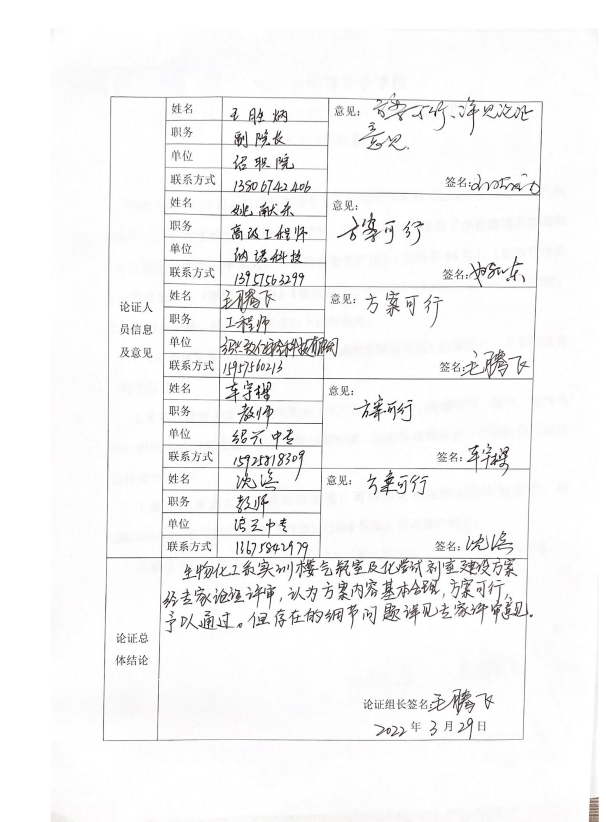 姓名 王胜炳 意见：方案可行、详见论证
意见
职务 副院长
单位 绍职院
联系方式 13806742406 签名：
姓名 姚献东 意见：
职务 高级工程师 方案可行
单位 纳诺科技
联系方式 13957563299 签名：
论证人员信息及意见
姓名 王腾飞 意见：方案可行
职务 工程师
单位
联系方式 15957560213 签名：王腾飞
姓名 车宇 意见：
职务 教师 方案可行
单位 绍兴中专
联系方式 15925818309 签名：车宇
姓名 沈滨 意见：方案可行
职务 教师
单位 绍兴中专
联系方式 13675842979 签名：沈滨
论证总体结论
生物化工系实训楼气瓶室及化学试剂室建设方案
经专家论证评审，认为方案内容基本合理，方案可行，
予以通过。但存在的细节问题详见专家评审意见。
论证组长签名：王腾飞
2022 年 3 月 29 日